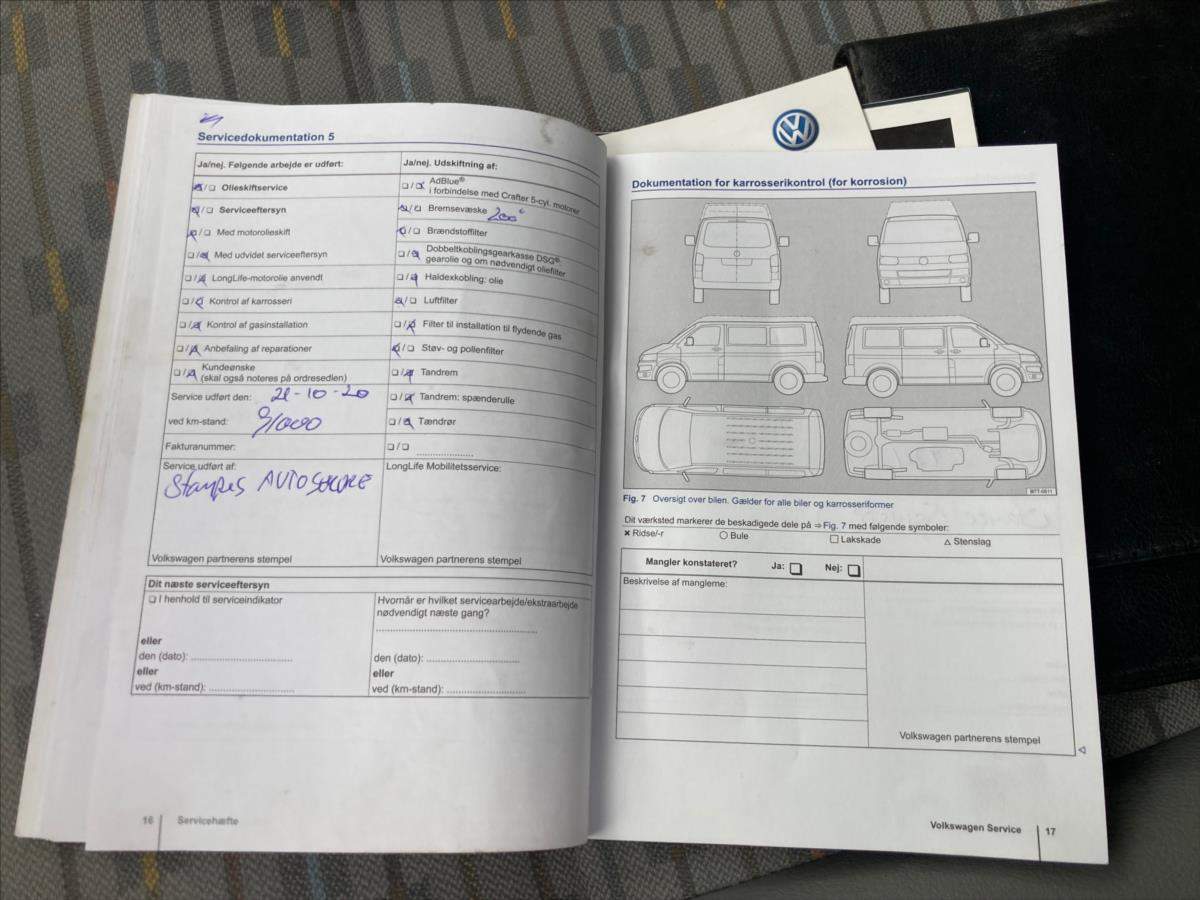 Servicedokumentation 5
Ja/nej. Følgende arbejde er udført:
☒/☐ Olieskiftservice
☒/☐ Serviceeftersyn
☒/☐ Med motorolieskift
☐/☒ Med udvidet serviceeftersyn
☐/☒ LongLife-motorolie anvendt
☐/☒ Kontrol af karrosseri
☐/☒ Kontrol af gasinstallation
☐/☒ Anbefaling af reparationer
☐/☒ Kundeønske
(skal også noteres på ordresedlen)
Service udført den: 21-10-20
ved km-stand: 91000
Fakturanummer:
Service udført af:
Stampes AUTOSERVICE
Volkswagen partnerens stempel
Ja/nej. Udskiftning af:
☐/☒ AdBlue®
i forbindelse med Crafter 5-cyl. motorer
☒/☐ Bremsevæske 200°
☒/☐ Brændstoffilter
☐/☒ Dobbeltkoblingsgearkasse DSG®:
gearolie og om nødvendigt oliefilter
☐/☒ Haldexkobling: olie
☒/☐ Luftfilter
☐/☒ Filter til installation til flydende gas
☒/☐ Støv- og pollenfilter
☐/☒ Tandrem
☐/☒ Tandrem: spænderulle
☐/☒ Tændrør
☐/☐ ....................
LongLife Mobilitetsservice:
Volkswagen partnerens stempel
Dit næste serviceeftersyn
☐ I henhold til serviceindikator
eller
den (dato): ....................
eller
ved (km-stand): ....................
Hvornår er hvilket servicearbejde/ekstraarbejde
nødvendigt næste gang?
den (dato): ....................
eller
ved (km-stand): ....................
16 Servicehæfte
Dokumentation for karrosserikontrol (for korrosion)
B7T-0611
Fig. 7 Oversigt over bilen. Gælder for alle biler og karrosseriformer
Dit værksted markerer de beskadigede dele på ⇒ Fig. 7 med følgende symboler:
✖ Ridse/-r ○ Bule ☐ Lakskade △ Stenslag
Mangler konstateret? Ja: ☐ Nej: ☐
Beskrivelse af manglerne:
Volkswagen partnerens stempel
Volkswagen Service 17